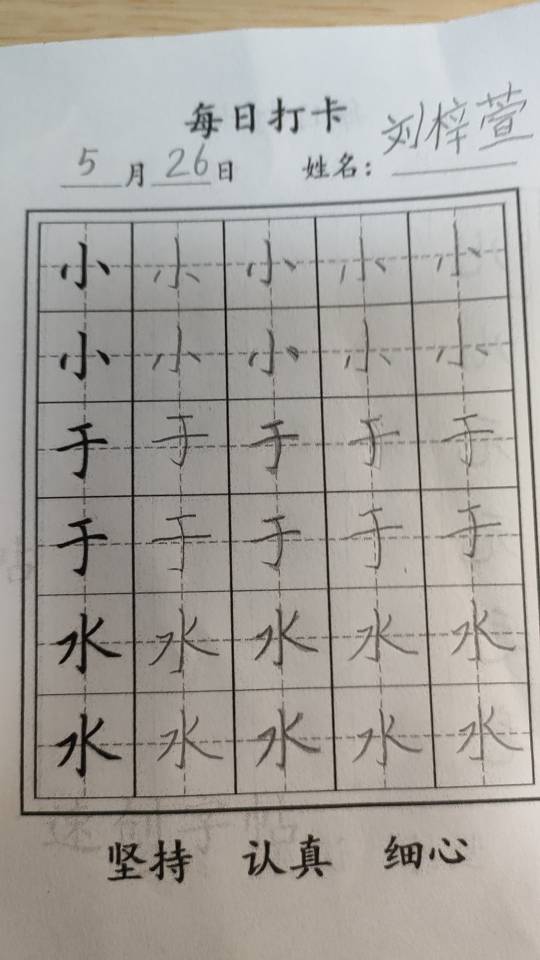 每日打卡
5月26日 姓名：刘梓萱
小小小小小
小小小小小
于于于于于
于于于于于
水水水水水
水水水水水
坚持 认真 细心